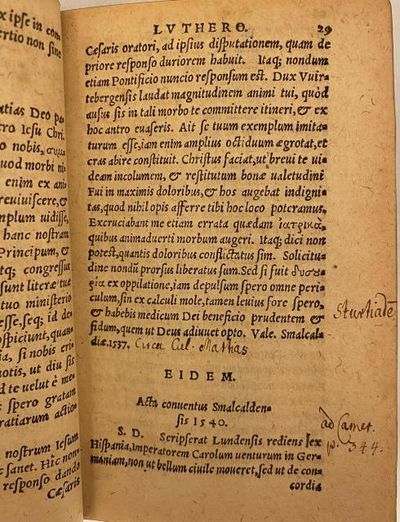 ex ipse in com
ertio non sine
atias Deo pa
tro Iesu Chri
o nobis,
quod morbi ni
enim ex ani
reuiuiscere, &
mplum uidisse,
hanc nostram
Principum, &
tq; congressus
sunt literæ tuæ
tuo ministerio
esse, seq; id de
ospiciunt, quan
ia, si nobis eri
uotis, ut diu sis
d te uelut è me
spero gratam
ratiarum actio
nostrum Iesum
c sanet. Hic non
responso dando
Cæsaris
LVTHERO. 29
Cæsaris oratori, ad ipsius disputationem, quam de
priore responso duriorem habuit. Itaq; nondum
etiam Pontificio nuncio responsum est. Dux Vuir-
tebergensis laudat magnitudinem animi tui, quòd
ausus sis in tali morbo te committere itineri, & ex
hoc antro euaseris. Ait se tuum exemplum imita-
turum esse, iam enim amplius octiduum ægrotat, et
cras abire constituit. Christus faciat, ut breui te ui-
deam incolumem, & restitutum bonæ ualetudini
Fui in maximis doloribus, & hos augebat indigni-
tas, quod nihil opis afferre tibi hoc loco poteramus.
Excruciabant me etiam errata quædam ἰατρικὰ,
quibus animaduerti morbum augeri. Itaq; dici non
potest, quantis doloribus conflictatus sim. Solicitu-
dine nondũ prorsus liberatus sum. Sed si fuit
gia ex oppilatione, iam depulsum spero omne peri-
culum, sin ex calculi mole, tamen leuius fore spero,
& habebis medicum Dei beneficio prudentem &
fidum, quem ut Deus adiuuet opto. Vale. Smalcal-
diæ. 1537. Circa
EIDEM.
Acta conuentus Smalcalden-
sis 1540.
S. D. Scripserat Lundensis rediens ex
Hispania, Imperatorem Carolum uenturum in Ger-
maniam, non ut bellum ciuile moueret, sed ut de con-
cordia
ad Camer.
p. 344.